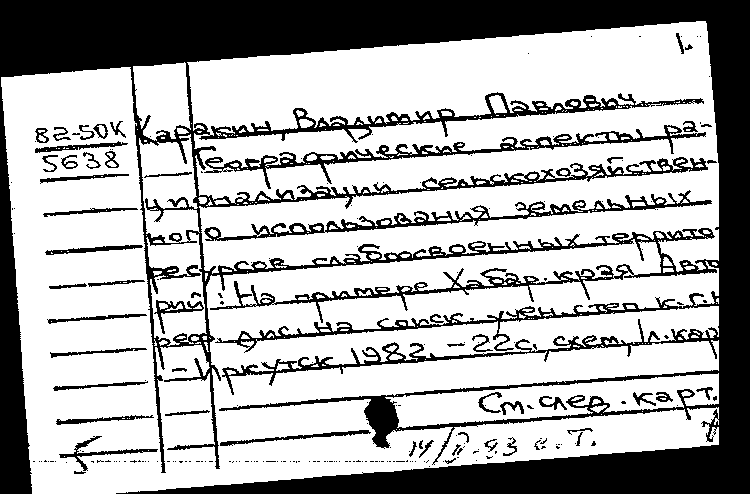 1.
82-50К Каракин, Владимир Павлович
5638 Географические аспекты ра-
ционализации сельскохозяйствен-
ного использования земельных
ресурсов слабоосвоенных террито-
рий: На примере Хабар. края Авто
реф. дис. на соиск. учен. степ к.г.н
. - Иркутск, 1982. - 22с., схем., 1л. кар
См. след. карт.
5 14/V-83 Т.